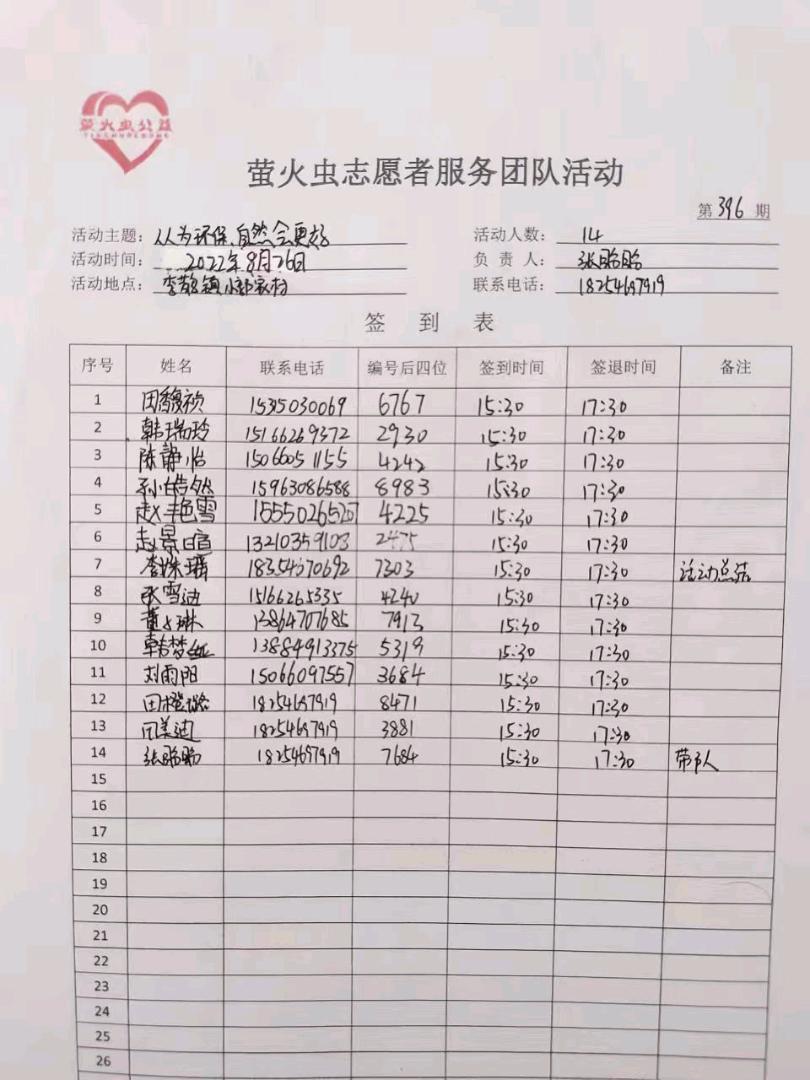 萤火虫公益
萤火虫志愿者服务团队活动
第396期
活动主题：人人为环保，自然会更好 活动人数：14
活动时间：2022年8月26日 负责人：张贻贻
活动地点：李鹊镇小郭家村 联系电话：18254697919
签到表
序号 姓名 联系电话 编号后四位 签到时间 签退时间 备注
1 田馥祯 15315030069 6767 15:30 17:30
2 韩瑞玲 15166269372 2930 15:30 17:30
3 陈静怡 15066051155 4242 15:30 17:30
4 孙皓然 15963086588 8983 15:30 17:30
5 赵艳雪 4225 15:30 17:30
6 赵景暄 13210359103 2475 15:30 17:30
7 7303 15:30 17:30 活动总结
8 15166265335 4240 15:30 17:30
9 13864707685 7913 15:30 17:30
10 13884913375 5319 15:30 17:30
11 刘雨阳 15066097557 3684 15:30 17:30
12 18254697919 8471 15:30 17:30
13 18254697919 3881 15:30 17:30
14 张贻贻 18254697919 7684 15:30 17:30 带队人
15
16
17
18
19
20
21
22
23
24
25
26